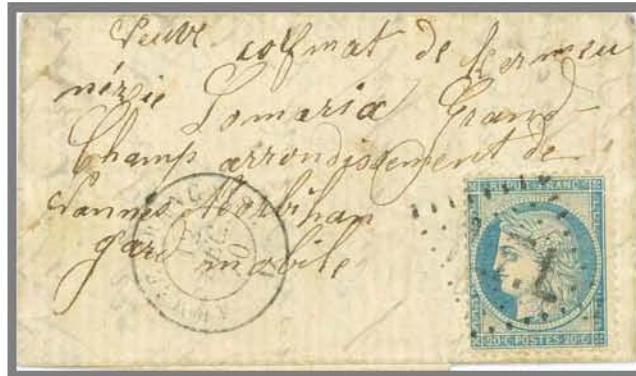 Veuve colmat de kermeu
nézie Lomaria Grand-
Champ arrondissement de
Vannes Morbihan
gard mobile
REPUB FRANC
20 C POSTES 20 C